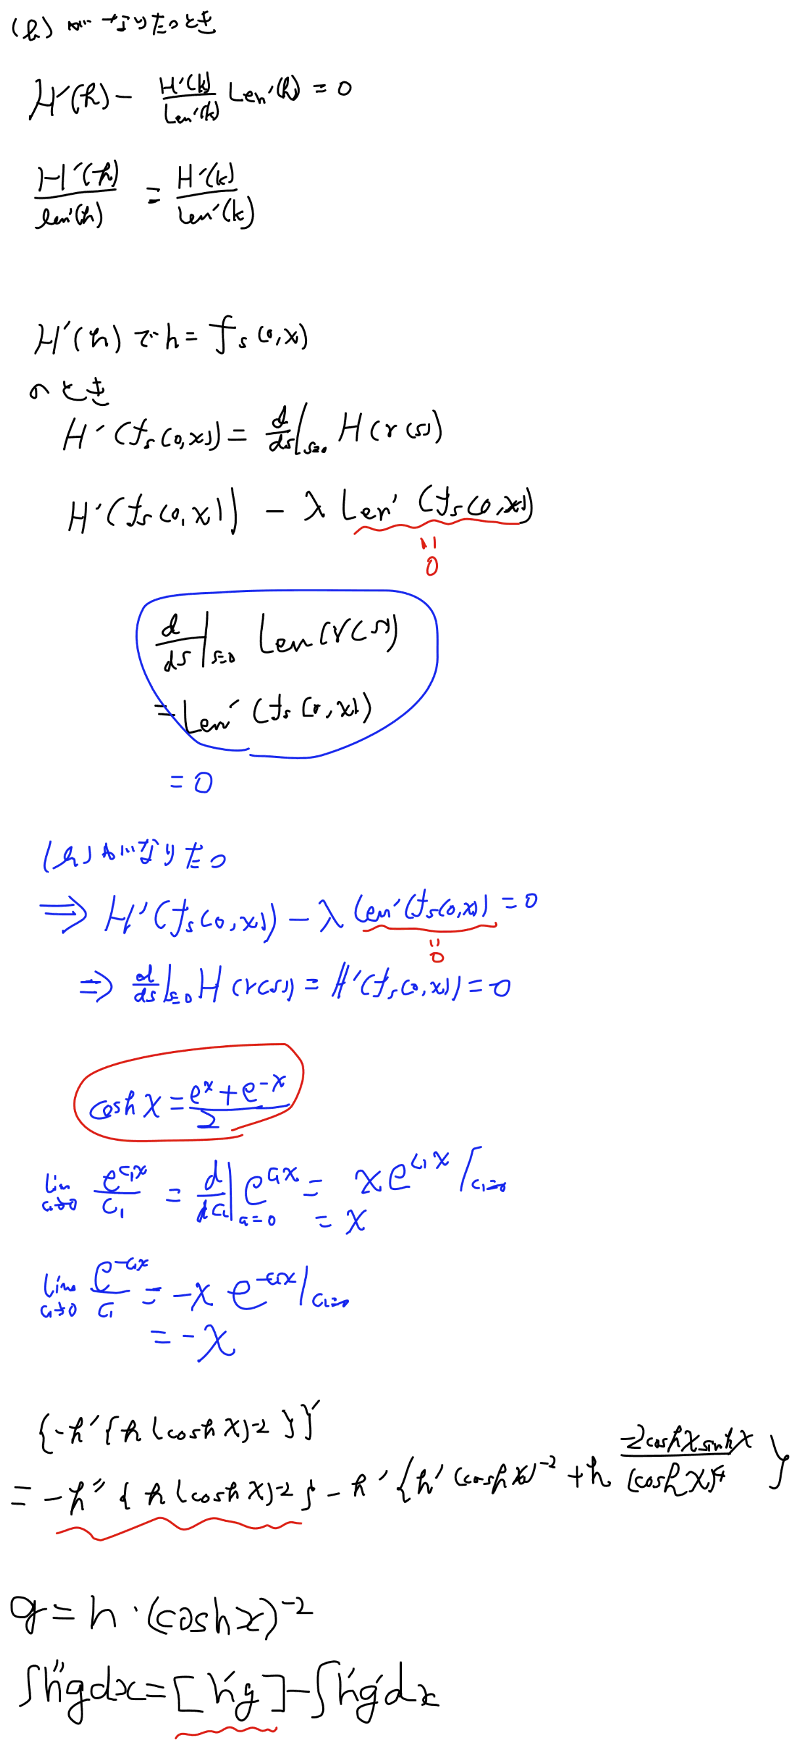 (h) がなりたつとき
H'(h) - H'(k)/Len'(k) Len'(h) = 0
H'(h)/Len'(h) = H'(k)/Len'(k)
H'(h) で h = fs(0,x)
のとき
H'(fs(0,x)) = d/ds|s=0 H(r(s))
H'(fs(0,x)) - λ Len'(fs(0,x))
=0
d/ds|s=0 Len(r(s))
= Len'(fs(0,x))
= 0
(h) がなりたつ
⇒ H'(fs(0,x)) - λ Len'(fs(0,x)) = 0
=0
⇒ d/ds|s=0 H(r(s)) = H'(fs(0,x)) = 0
cosh x = (e^x + e^-x)/2
lim c1→0 e^(c1x)/c1 = d/dc1| c1=0 e^(c1x) = x e^(c1x)|c1=0
= x
lim c1→0 e^(-c1x)/c1 = -x e^(-c1x)|c1=0
= -x
{-h'{h(cosh x)-2}}'
= -h''{h(cosh x)-2} - h'{h'(cosh x)^-2 + h (-2cosh x sinh x)/(cosh x)^4}
g = h·(cosh x)^-2
∫h''g dx = [h'g] - ∫h'g' dx